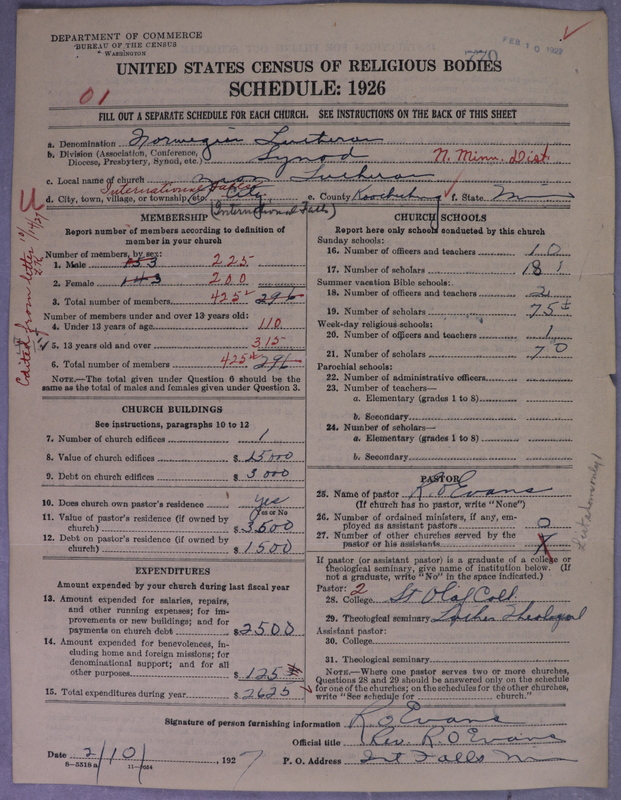 DEPARTMENT OF COMMERCE
BUREAU OF THE CENSUS
WASHINGTON
770
FEB 10 1927
UNITED STATES CENSUS OF RELIGIOUS BODIES
SCHEDULE: 1926
01
FILL OUT A SEPARATE SCHEDULE FOR EACH CHURCH. SEE INSTRUCTIONS ON THE BACK OF THIS SHEET
a. Denomination Norwegian Lutheran
b. Division (Association, Conference, Diocese, Presbytery, Synod, etc.) Synod N. Minn. Dist
c. Local name of church Lutheran
International Falls
d. City, town, village, or township, etc. City e. County Koochiching f. State
(International Falls)
Edited from letter
MEMBERSHIP
Report number of members according to definition of
member in your church
Number of members, by sex:
1. Male 153 225
2. Female 143 200
3. Total number of members 425 296
Number of members under and over 13 years old:
4. Under 13 years of age 110
5. 13 years old and over 315
6. Total number of members 425 296
NOTE.—The total given under Question 6 should be
the same as the total of males and females given under Question 3.
CHURCH BUILDINGS
See instructions, paragraphs 10 to 12
7. Number of church edifices 1
8. Value of church edifices $ 15000
9. Debt on church edifices $ 3000
10. Does church own pastor's residence yes
Yes or No
11. Value of pastor's residence (if owned by
church) $ 3500
12. Debt on pastor's residence (if owned by
church) $ 1500
EXPENDITURES
Amount expended by your church during last fiscal year
13. Amount expended for salaries, repairs,
and other running expenses; for im-
provements or new buildings; and for
payments on church debt $ 2500
14. Amount expended for benevolences, in-
cluding home and foreign missions; for
denominational support; and for all
other purposes $ 125
15. Total expenditures during year $ 2625
CHURCH SCHOOLS
Report here only schools conducted by this church
Sunday schools:
16. Number of officers and teachers 10
17. Number of scholars 181
Summer vacation Bible schools:
18. Number of officers and teachers 2
19. Number of scholars 75±
Week-day religious schools:
20. Number of officers and teachers 1
21. Number of scholars 70
Parochial schools:
22. Number of administrative officers
23. Number of teachers—
a. Elementary (grades 1 to 8)
b. Secondary
24. Number of scholars—
a. Elementary (grades 1 to 8)
b. Secondary
PASTOR
25. Name of pastor R. O Evans
(If church has no pastor, write "None")
26. Number of ordained ministers, if any, em-
ployed as assistant pastors 0
27. Number of other churches served by the
pastor or his assistants X
If pastor (or assistant pastor) is a graduate of a college or
theological seminary, give name of institution below. (If
not a graduate, write "No" in the space indicated.)
Pastor: 2
28. College St Olaf Coll
29. Theological seminary Luther Theological
Assistant pastor:
30. College
31. Theological seminary
NOTE.—Where one pastor serves two or more churches,
Questions 28 and 29 should be answered only on the schedule
for one of the churches; on the schedules for the other churches,
write "See schedule for church."
Signature of person furnishing information R. O Evans
Official title Rev. R. O Evans
Date 2/10/, 1927 P. O. Address Int Falls
8-5318 a 11-9054